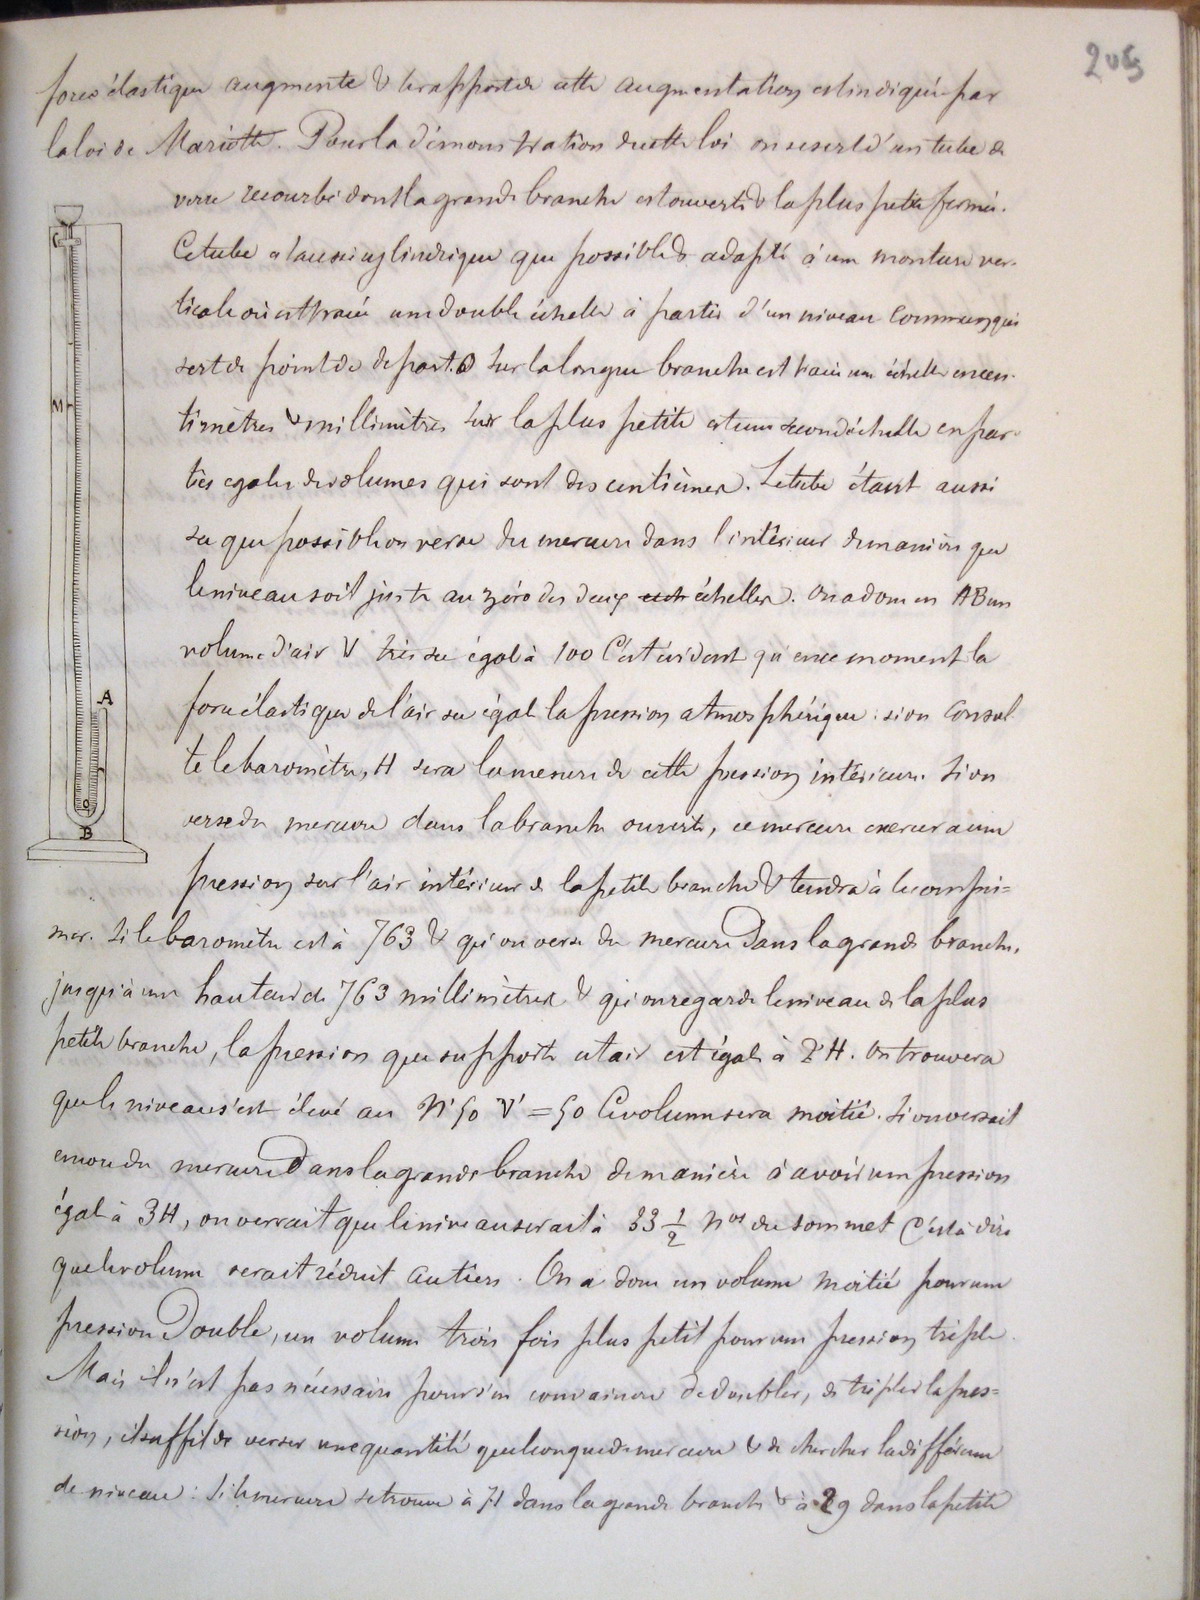 205
force élastique augmente & le rapport de cette augmentation est indiqué par
la loi de Mariotte. Pour la démonstration de cette loi on se sert d'un tube de
verre recourbé dont la grande branche est ouverte & la plus petite fermée.
Ce tube est aussi cylindrique que possible & adapté à une monture ver-
ticale où est tracée une double échelle à partir d'un niveau commun qui
sert de point de départ. Sur la longue branche est tracée une échelle en cen-
timètres & millimètres sur la plus petite est une seconde échelle en par-
ties egales de volumes qui sont des centièmes. Le tube étant aussi
sec que possible on verse du mercure dans l'intérieur de manière que
le niveau soit juste au zéro des deux ech échelles. On a donc en AB un
volume d'air V très sec égal à 100 C'est évident qu'en ce moment la
force élastique de l'air sec égale la pression atmosphérique : si on consul
te le baromètre, H sera la mesure de cette pression intérieure. Si on
verse du mercure dans la branche ouverte, ce mercure exercera une
pression sur l'air intérieur de la petite branche & tendra à le compri=
mer. Si le baromètre est à 763 & qu'on verse du mercure Dans la grande branche,
jusqu'à une hauteur de 763 millimètres & qu'on regarde le niveau de la plus
petite branche, la pression que supporte cet air est égale à 2H. On trouvera
que le niveau s'est élevé au N° 50 V' = 50 Ce volume sera moitié. Si on versait
encore du mercure Dans la grande branche de manière à avoir une pression
égale à 3H, on verrait que le niveau serait à 33 1/2 nos du sommet C'est à dire
que le volume serait réduit au tiers. On a donc un volume moitié pour une
pression Double, un volume trois fois plus petit pour une pression triple.
Mais il n'est pas nécessaire pour s'en convaincre de doubler, de tripler la pres=
sion, il suffit de verser une quantité quelconque de mercure & de chercher la différence
de niveau : Si le mercure se trouve à 71 dans la grande branche & à 29 dans la petite
C
M
A
O
B